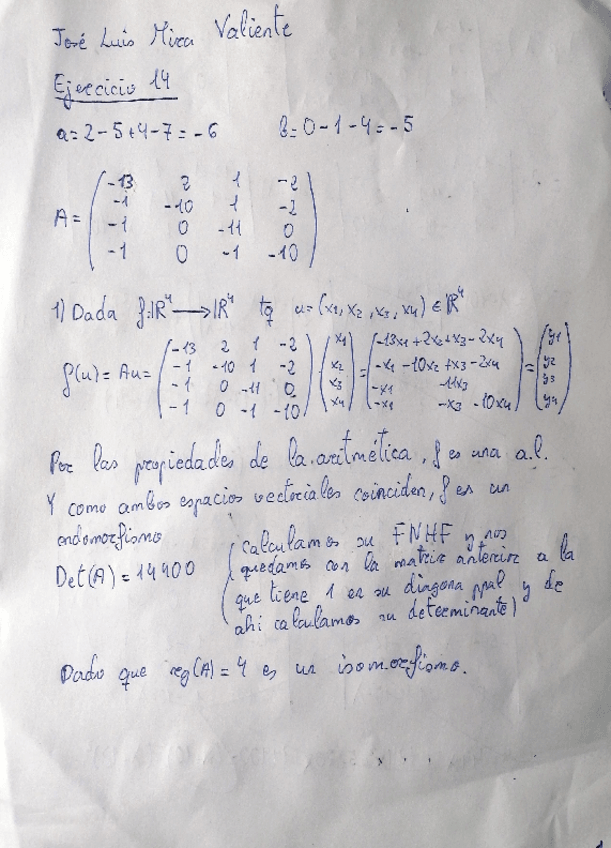 José Luis Mira Valiente
Ejercicio 14
a=2-5+4-7=-6 b=0-1-4=-5
A= (-13 2 1 -2
-1 -10 1 -2
-1 0 -11 0
-1 0 -1 -10)
1) Dada f:ℝ⁴→ℝ⁴ tq u=(x1,x2,x3,x4)∈ℝ⁴
f(u)=Au= (-13 2 1 -2 (x1 (-13x1+2x2+x3-2x4 (y1
-1 -10 1 -2 x2 -x1-10x2+x3-2x4 y2
-1 0 -11 0 x3 -x1 -11x3 y3
-1 0 -1 -10) x4) = -x1 -x3-10x4) = y4)
Por las propiedades de la aritmética, f es una a.l.
Y como ambos espacios vectoriales coinciden, f es un
endomorfismo
Det(A)=14400 (calculamos su FNHF y nos
quedamos con la matriz anterior a la
que tiene 1 en su diagona ppal y de
ahi calculamos su determinante)
Dado que rg(A)=4 es un isomorfismo.